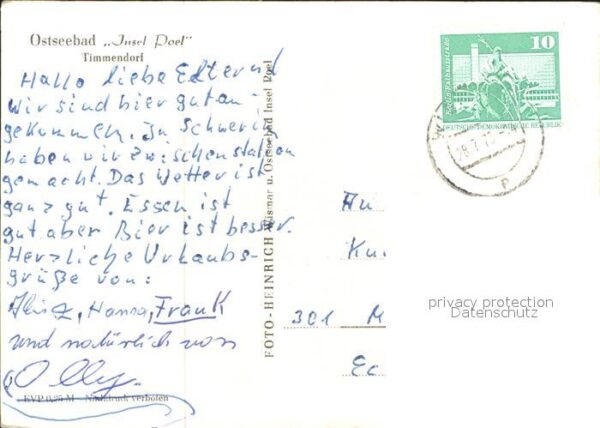 Ostseebad „Insel Poel"
Timmendorf
Hallo liebe Eltern!
Wir sind hier gut an-
gekommen. In Schwerin
haben wir Zwischenstation
gemacht. Das Wetter ist
ganz gut. Essen ist
gut aber Bier ist besser.
Herzliche Urlaubs-
grüße von:
Hanna, Frank
und natürlich von
Olly.
EVP 0,25 M - Nachdruck verboten
FOTO-HEINRICH Wismar u. Ostseebad Insel Poel
10
DEUTSCHE DEMOKRATISCHE REPUBLIK
An
301 M
privacy protection
Datenschutz